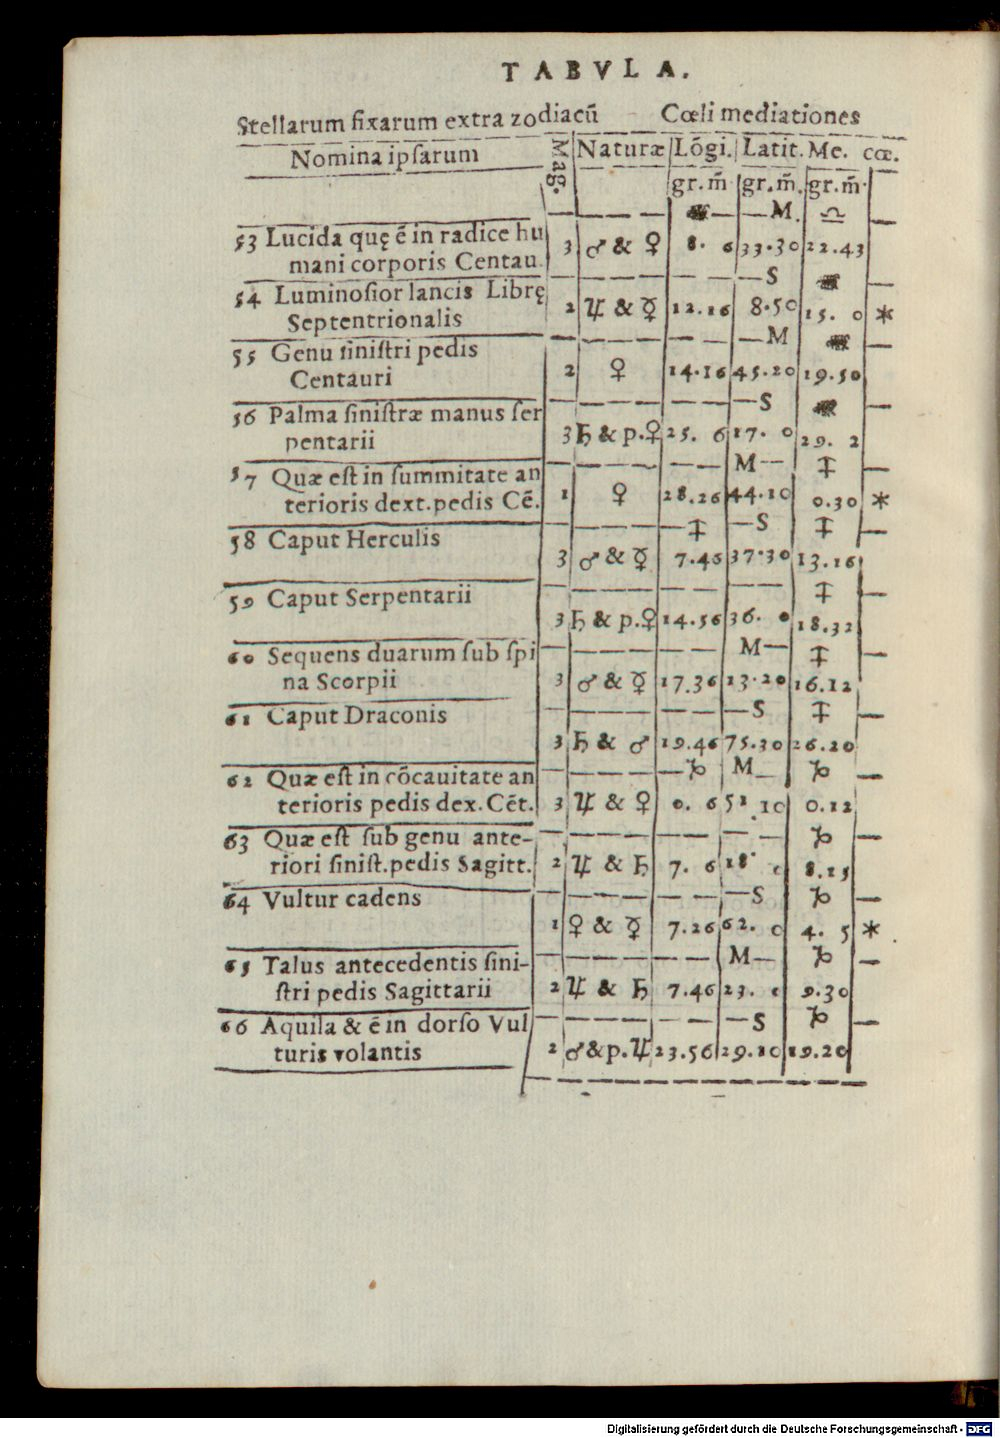 TABVLA.
Stellarum fixarum extra zodiacū Cœli mediationes
Nomina ipſarum Mag. Naturæ Lōgi. Latit. Me. cœ.
gr. m̄ gr. m̄. gr. m̄.
M. ♎
53 Lucida quę ē in radice hu
mani corporis Centau. 3 ♂ & ♀ 8. 6 33.30 22.43
S
54 Luminoſior lancis Librę
Septentrionalis 2 ♃ & ☿ 12.16 8.50 15. 0 *
M
55 Genu ſiniſtri pedis
Centauri 2 ♀ 14.16 45.20 19.50
S
56 Palma ſiniſtræ manus ſer
pentarii 3 ♄ & p.♀ 25. 6 17. 0 29. 2
M ♐
57 Quæ eſt in ſummitate an
terioris dext.pedis Cē. 1 ♀ 28.26 44.10 0.30 *
♐ S ♐
58 Caput Herculis
3 ♂ & ☿ 7.46 37.30 13.16
♐
59 Caput Serpentarii
3 ♄ & p.♀ 14.56 36. 0 18.32
M ♐
60 Sequens duarum ſub ſpi
na Scorpii 3 ♂ & ☿ 17.36 13.20 16.12
S ♐
61 Caput Draconis
3 ♄ & ♂ 19.46 75.30 26.20
♑ M ♑
62 Quæ eſt in cōcauitate an
terioris pedis dex.Cēt. 3 ♃ & ♀ 0. 6 51 10 0.12
♑
63 Quæ eſt ſub genu ante-
riori ſiniſt.pedis Sagitt. 2 ♃ & ♄ 7. 6 18 8.15
S ♑
64 Vultur cadens
1 ♀ & ☿ 7.26 62. 0 4. 5 *
M ♑
65 Talus antecedentis ſini-
ſtri pedis Sagittarii 2 ♃ & ♄ 7.46 23. 9.30
S ♑
66 Aquila & ē in dorſo Vul
turis volantis 2 ♂ & p.♃ 23.56 29.10 19.20
Digitalisierung gefördert durch die Deutsche Forschungsgemeinschaft - DFG